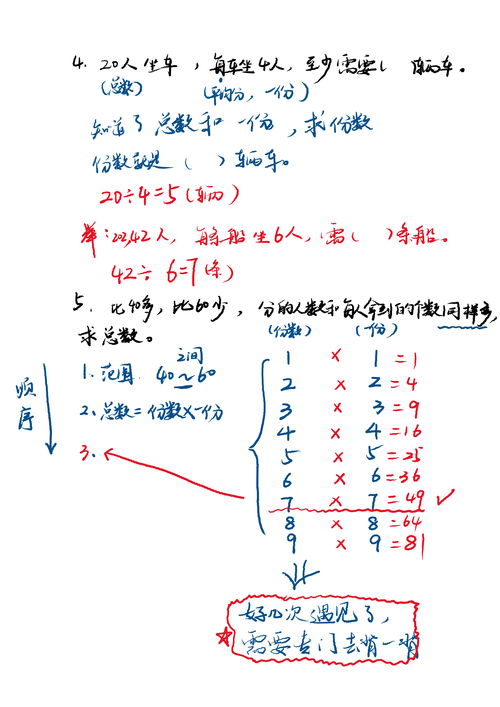 4. 20人坐车，每车坐4人，至少需要( )辆车。
(总数) (平均分，一份)
知道了总数和一份，求份数
份数就是( )辆车。
20÷4=5(辆)
42人，每条船坐6人，需( )条船。
42÷6=7(条)
5. 比40多，比60少，分的人数和每人拿到的个数同样多，
(份数) (一份)
求总数。
顺序
1. 范围 40~60
之间
2. 总数=份数×一份
3.
1 × 1=1
2 × 2=4
3 × 3=9
4 × 4=16
5 × 5=25
6 × 6=36
7 × 7=49 ✓
8 × 8=64
9 × 9=81
好几次遇见了，
☆需要专门去背一背